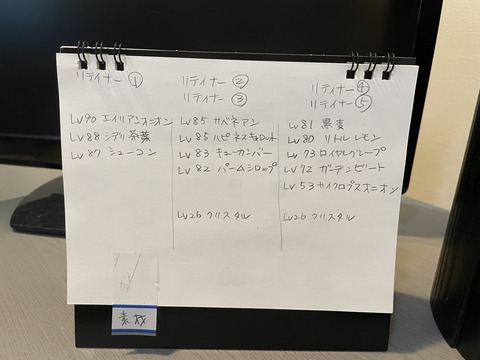 リテイナー ①
Lv90 エイリアンオニオン
Lv88 シデリ茶葉
Lv87 シューコン
リテイナー ②
リテイナー ③
Lv85 サベネアン
Lv85 ハピネスキャロット
Lv83 キューカンバー
Lv82 パームシロップ
Lv26 クリスタル
リテイナー ④
リテイナー ⑤
Lv81 黒麦
Lv80 リトルレモン
Lv73 ロイヤルグレープ
Lv72 ガーデンビート
Lv53 サイクロプスオニオン
Lv26 クリスタル
素材